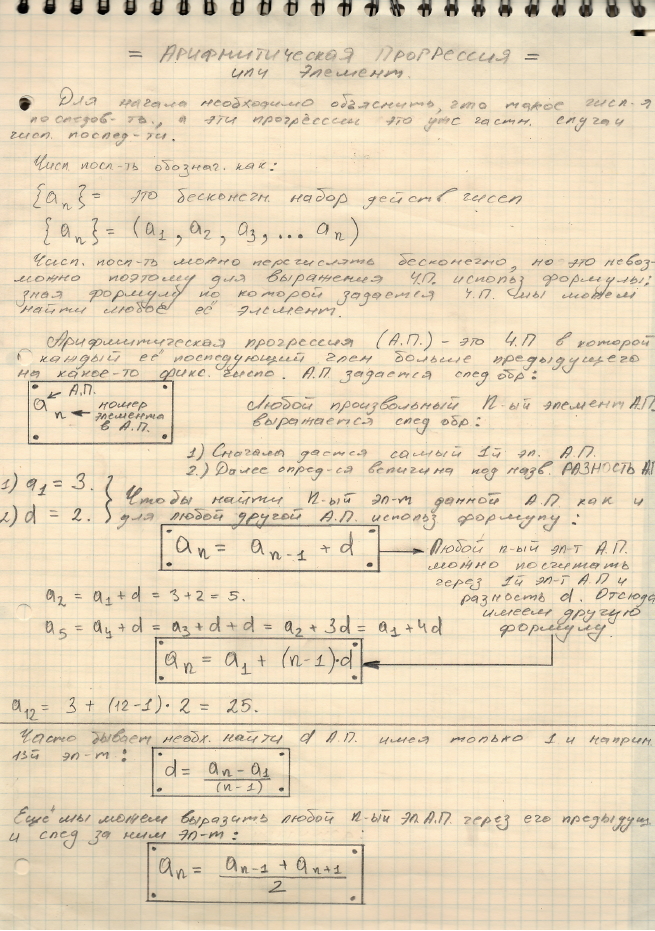 = Арифмитическая Прогрессия =
или Элемент.
Для начала необходимо объяснить, что такое числ-я
последов-ть., а эти прогрессии это уже частн. случаи
числ. послед-ти.
Числ посл-ть обознач. как:
{aₙ} = это бесконечн. набор действ чисел
{aₙ} = (a₁, a₂, a₃, ... aₙ)
Числ. посл-ть можно перечислять бесконечно, но это невоз-
можно поэтому для выражения Ч.П. использ формулы:
зная формулу по которой задается Ч.П. мы можем
найти любое её элемент.
Арифмитическая прогрессия (А.П.) - это Ч.П в которой
каждый её последующий член больше предыдущего
на какое-то фикс. число. А.П. задается след обр:
А.П.
aₙ номер
элемента
в А.П.
Любой произвольный n-ый элемент А.П.
выражается след обр:
1) Сначала дается самый 1й эл. А.П.
2.) Далее опред-ся величина под назв. РАЗНОСТЬ АП
1) a₁ = 3.
2) d = 2.
Чтобы найти n-ый эл-т данной А.П как и
для любой другой А.П. использ формулу:
aₙ = aₙ₋₁ + d
Любой n-ый эл-т А.П.
можно посчитать
через 1й эл-т А.П и
разность d. Отсюда
имеем другую
формулу
a₂ = a₁ + d = 3 + 2 = 5.
a₅ = a₄ + d = a₃ + d + d = a₂ + 3d = a₁ + 4d
aₙ = a₁ + (n-1)·d
a₁₂ = 3 + (12-1)·2 = 25.
Часто бывает необх. найти d А.П. имея только 1 и наприм.
13й эл-т:
d = aₙ - a₁ / (n-1)
Ещё мы можем выразить любой n-ый эл. А.П. через его предыдущ
и след за ним эл-т:
aₙ = aₙ₋₁ + aₙ₊₁ / 2